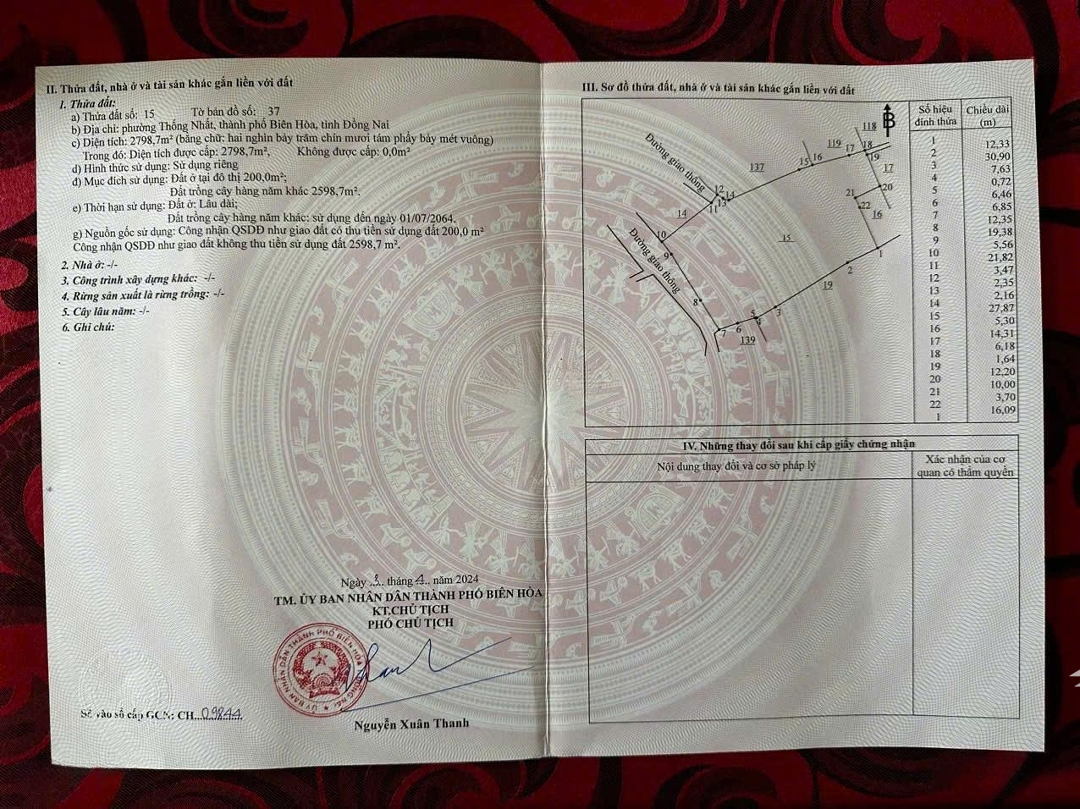 II. Thửa đất, nhà ở và tài sản khác gắn liền với đất
1. Thửa đất:
a) Thửa đất số: 15 Tờ bản đồ số: 37
b) Địa chỉ: phường Thống Nhất, thành phố Biên Hòa, tỉnh Đồng Nai
c) Diện tích: 2798,7m² (bằng chữ: hai nghìn bảy trăm chín mươi tám phẩy bảy mét vuông)
Trong đó: Diện tích được cấp: 2798,7m². Không được cấp: 0,0m²
d) Hình thức sử dụng: Sử dụng riêng
đ) Mục đích sử dụng: Đất ở tại đô thị 200,0m²;
Đất trồng cây hàng năm khác 2598,7m².
e) Thời hạn sử dụng: Đất ở: Lâu dài;
Đất trồng cây hàng năm khác: sử dụng đến ngày 01/07/2064.
g) Nguồn gốc sử dụng: Công nhận QSDĐ như giao đất có thu tiền sử dụng đất 200,0 m²
Công nhận QSDĐ như giao đất không thu tiền sử dụng đất 2598,7 m².
2. Nhà ở: -/-
3. Công trình xây dựng khác: -/-
4. Rừng sản xuất là rừng trồng: -/-
5. Cây lâu năm: -/-
6. Ghi chú:
Ngày 3 tháng 4 năm 2024
TM. ỦY BAN NHÂN DÂN THÀNH PHỐ BIÊN HÒA
KT.CHỦ TỊCH
PHÓ CHỦ TỊCH
ỦY BAN NHÂN DÂN THÀNH PHỐ BIÊN HÒA
Nguyễn Xuân Thanh
Số vào sổ cấp GCN: CH 09844
III. Sơ đồ thửa đất, nhà ở và tài sản khác gắn liền với đất
B
118
119
18
17
19
15 16
137
17
Đường giao thông
12
13
14
11
20
21
22
16
14
10
15
1
Đường giao thông
9
2
19
8
3
5
4
7 6
139
Số hiệu đỉnh thửa Chiều dài (m)
1
12,33
2
30,90
3
7,63
4
0,72
5
6,46
6
6,85
7
12,35
8
19,38
9
5,56
10
21,82
11
3,47
12
2,35
13
2,16
14
27,87
15
5,30
16
14,31
17
6,18
18
1,64
19
12,20
20
10,00
21
3,70
22
16,09
1
IV. Những thay đổi sau khi cấp giấy chứng nhận
Nội dung thay đổi và cơ sở pháp lý
Xác nhận của cơ
quan có thẩm quyền